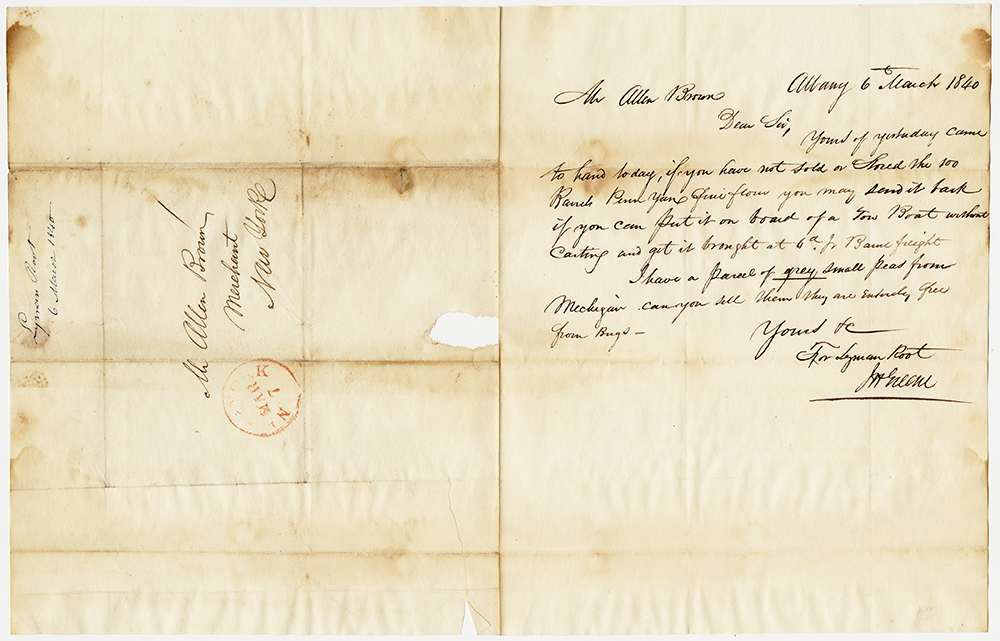 Lyman Root
6 March 1840
Mr Allen Brown
Merchant
New York
MAR
7
Albany 6th March 1840
Mr Allen Brown
Dear Sir,
Yours of yesterday came
to hand today, if you have not sold or Stored the 100
Barrels Penn Yan fine flour you may send it back
if you can put it on board of a Tow Boat without
Carting and get it brought at 6d. pr Barrel freight
I have a Parcel of grey small Peas from
Mechigan can you sell them they are Entirely free
from Bugs –
Yours &c
For Lyman Root
JH Greene